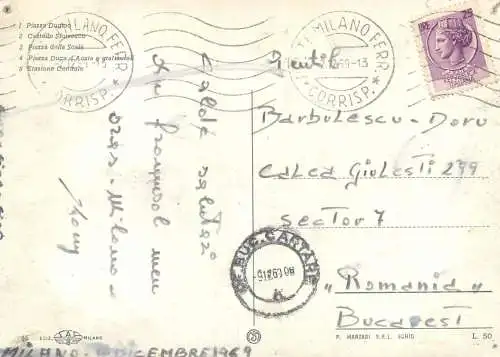 1 Piazza Duomo
2 Castello Sforzesco
3 Piazza della Scala
4 Piazza Duca d'Aosta e grattacieli
5 Stazione Centrale
MILANO FERR.
CORRISP.
MILANO FERR.
CORRISP.
Calde salutări
din frumosul meu
oraș - Milano -
Gentile
Barbulescu - Doru
Calea Giulesti 299
sector 7
"Romania"
Bucarest
BUC. CARTARE
EDIZ. SAF MILANO
L. 50
MILANO DICEMBRE 1969